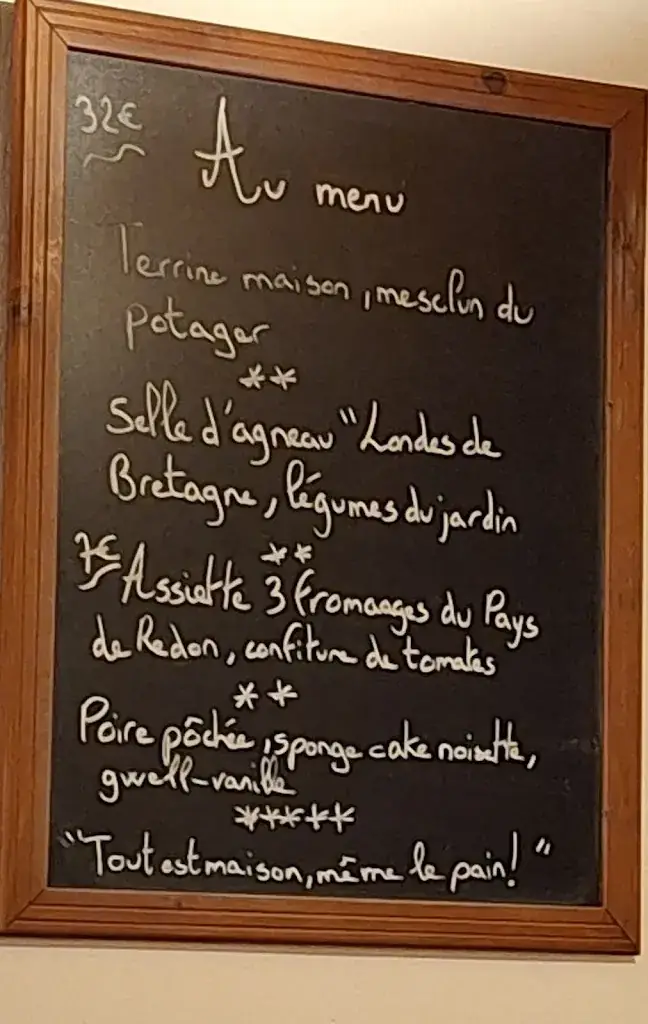 32€
Au menu
Terrine maison, mesclun du
potager
**
Selle d'agneau "Landes de
Bretagne, légumes du jardin
**
7€
Assiette 3 fromages du Pays
de Redon, confiture de tomates
**
Poire pôchée, sponge cake noisette,
gwell-vanille
*****
"Tout est maison, même le pain!"